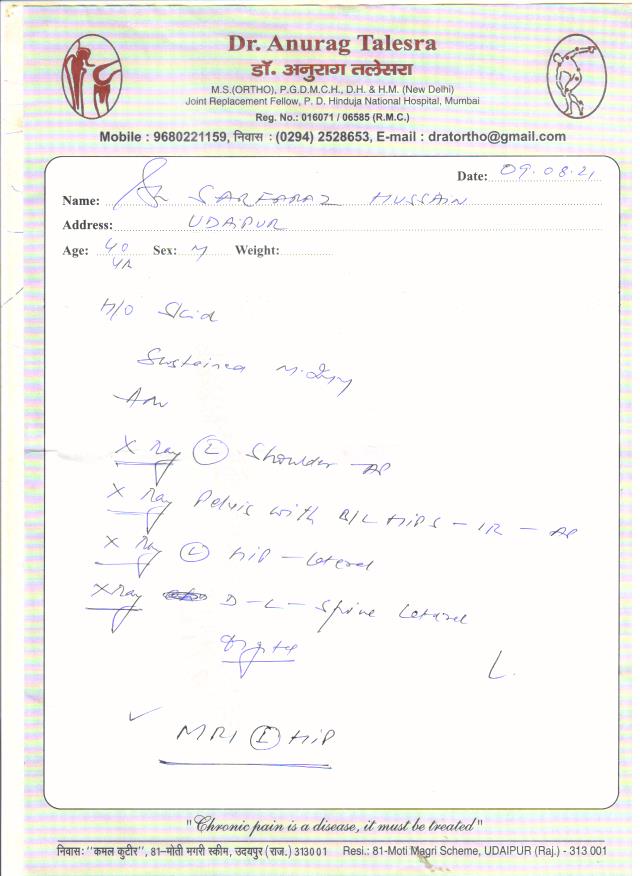 Dr. Anurag Talesra
डॉ. अनुराग तलेसरा
M.S.(ORTHO), P.G.D.M.C.H., D.H. & H.M. (New Delhi)
Joint Replacement Fellow, P. D. Hinduja National Hospital, Mumbai
Reg. No.: 016071 / 06585 (R.M.C.)
Mobile : 9680221159, निवास : (0294) 2528653, E-mail : dratortho@gmail.com
Date: 09.08.21
Name: SARFARAZ HUSSAIN
Address: UDAIPUR
Age: 40 YR Sex: M Weight:
H/O Skid
Sustained
X Ray (L) Shoulder - AP
X Ray Pelvis with B/L HIPS - IR - AP
X Ray (L) HIP - Lateral
X Ray D-L-Spine Lateral
MRI (L) HIP
"Chronic pain is a disease, it must be treated"
निवास: "कमल कुटीर", 81–मोती मगरी स्कीम, उदयपुर (राज.) 313001 Resi.: 81-Moti Magri Scheme, UDAIPUR (Raj.) - 313 001